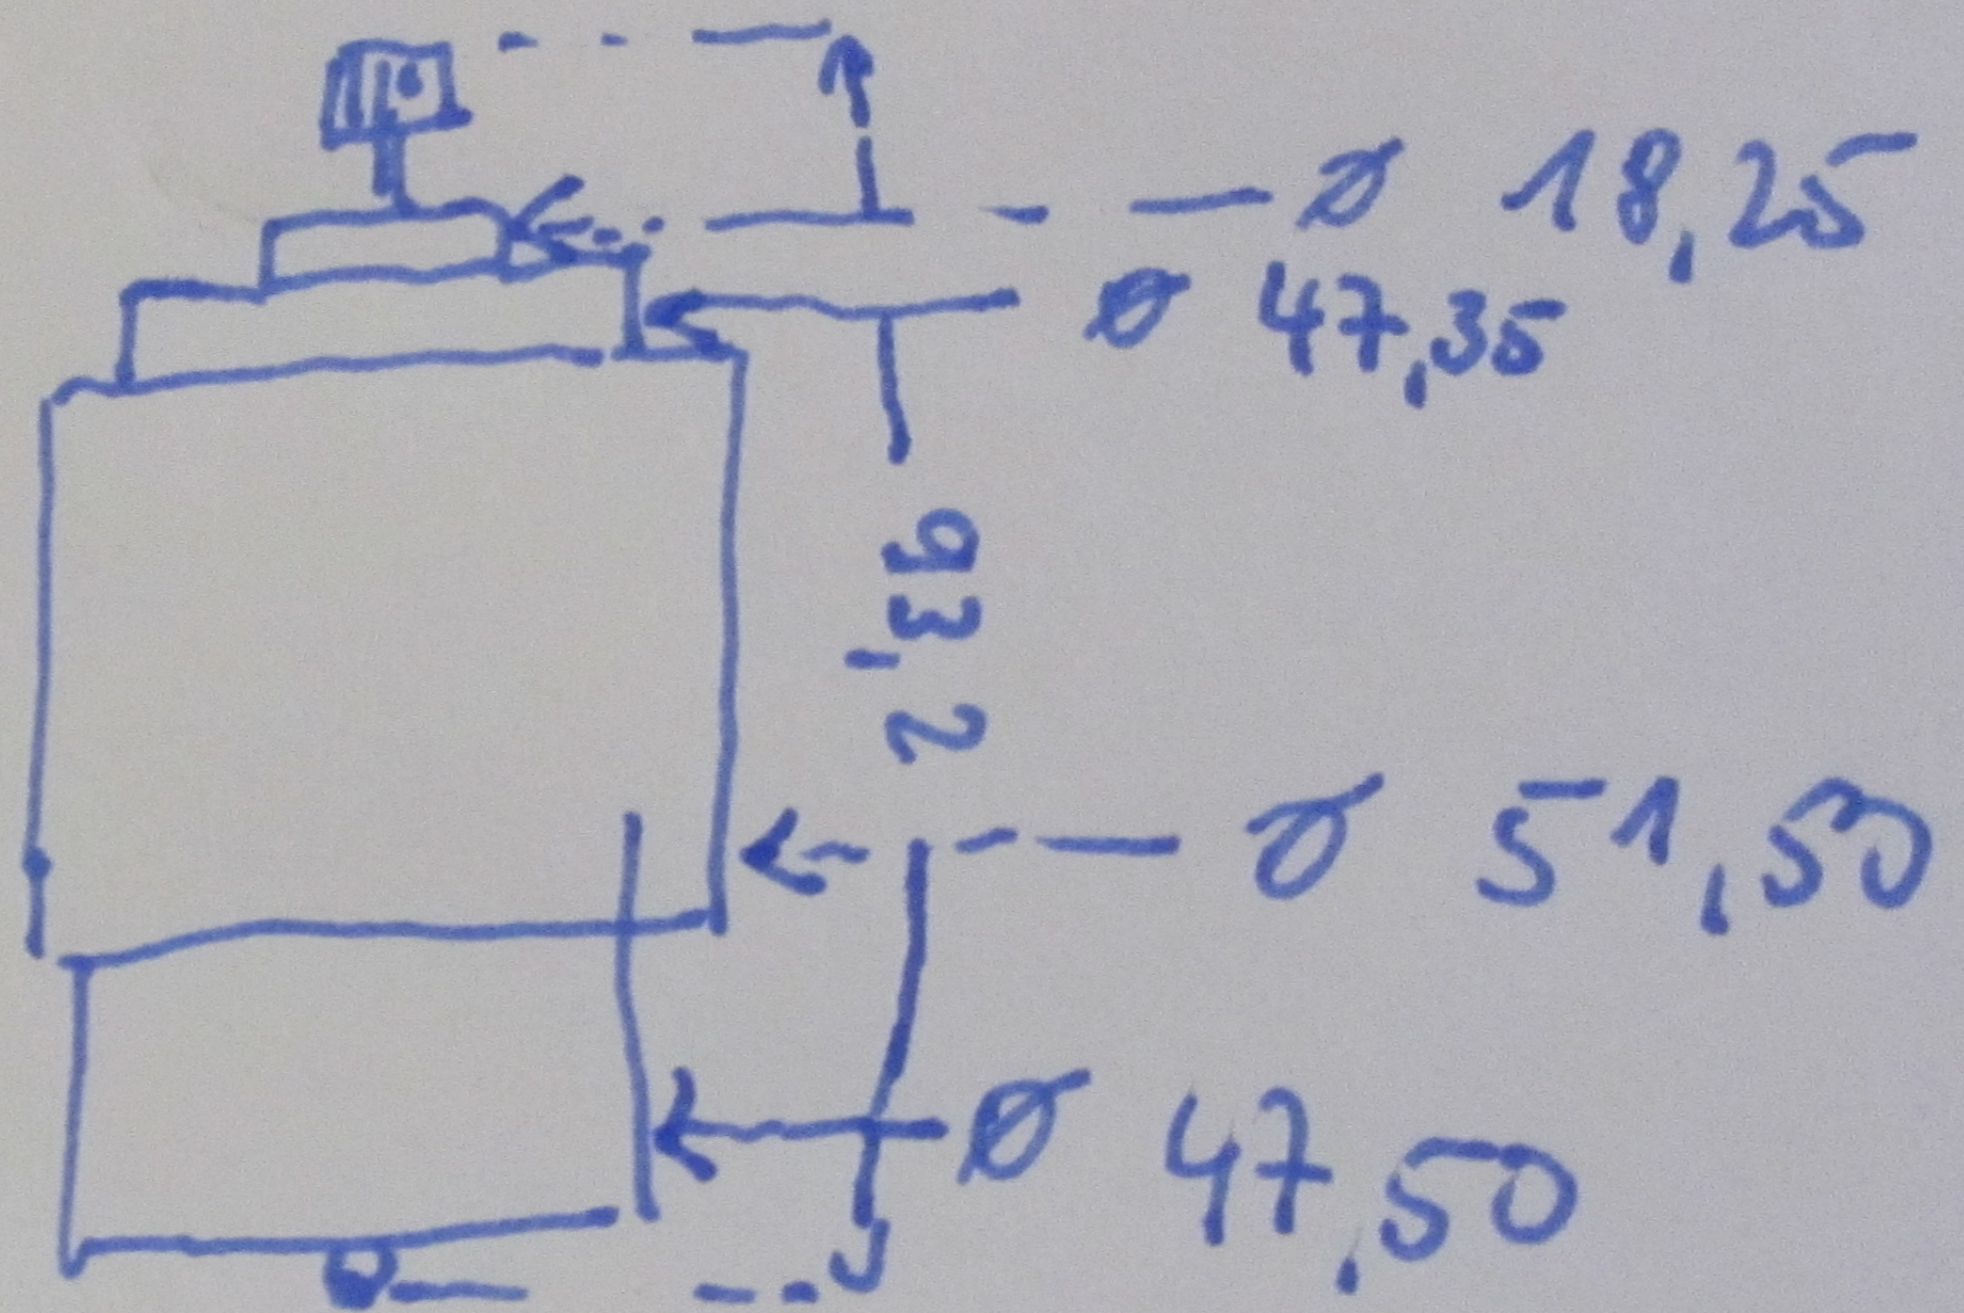 ø 18,25
ø 47,35
93,2
ø 51,50
ø 47,50